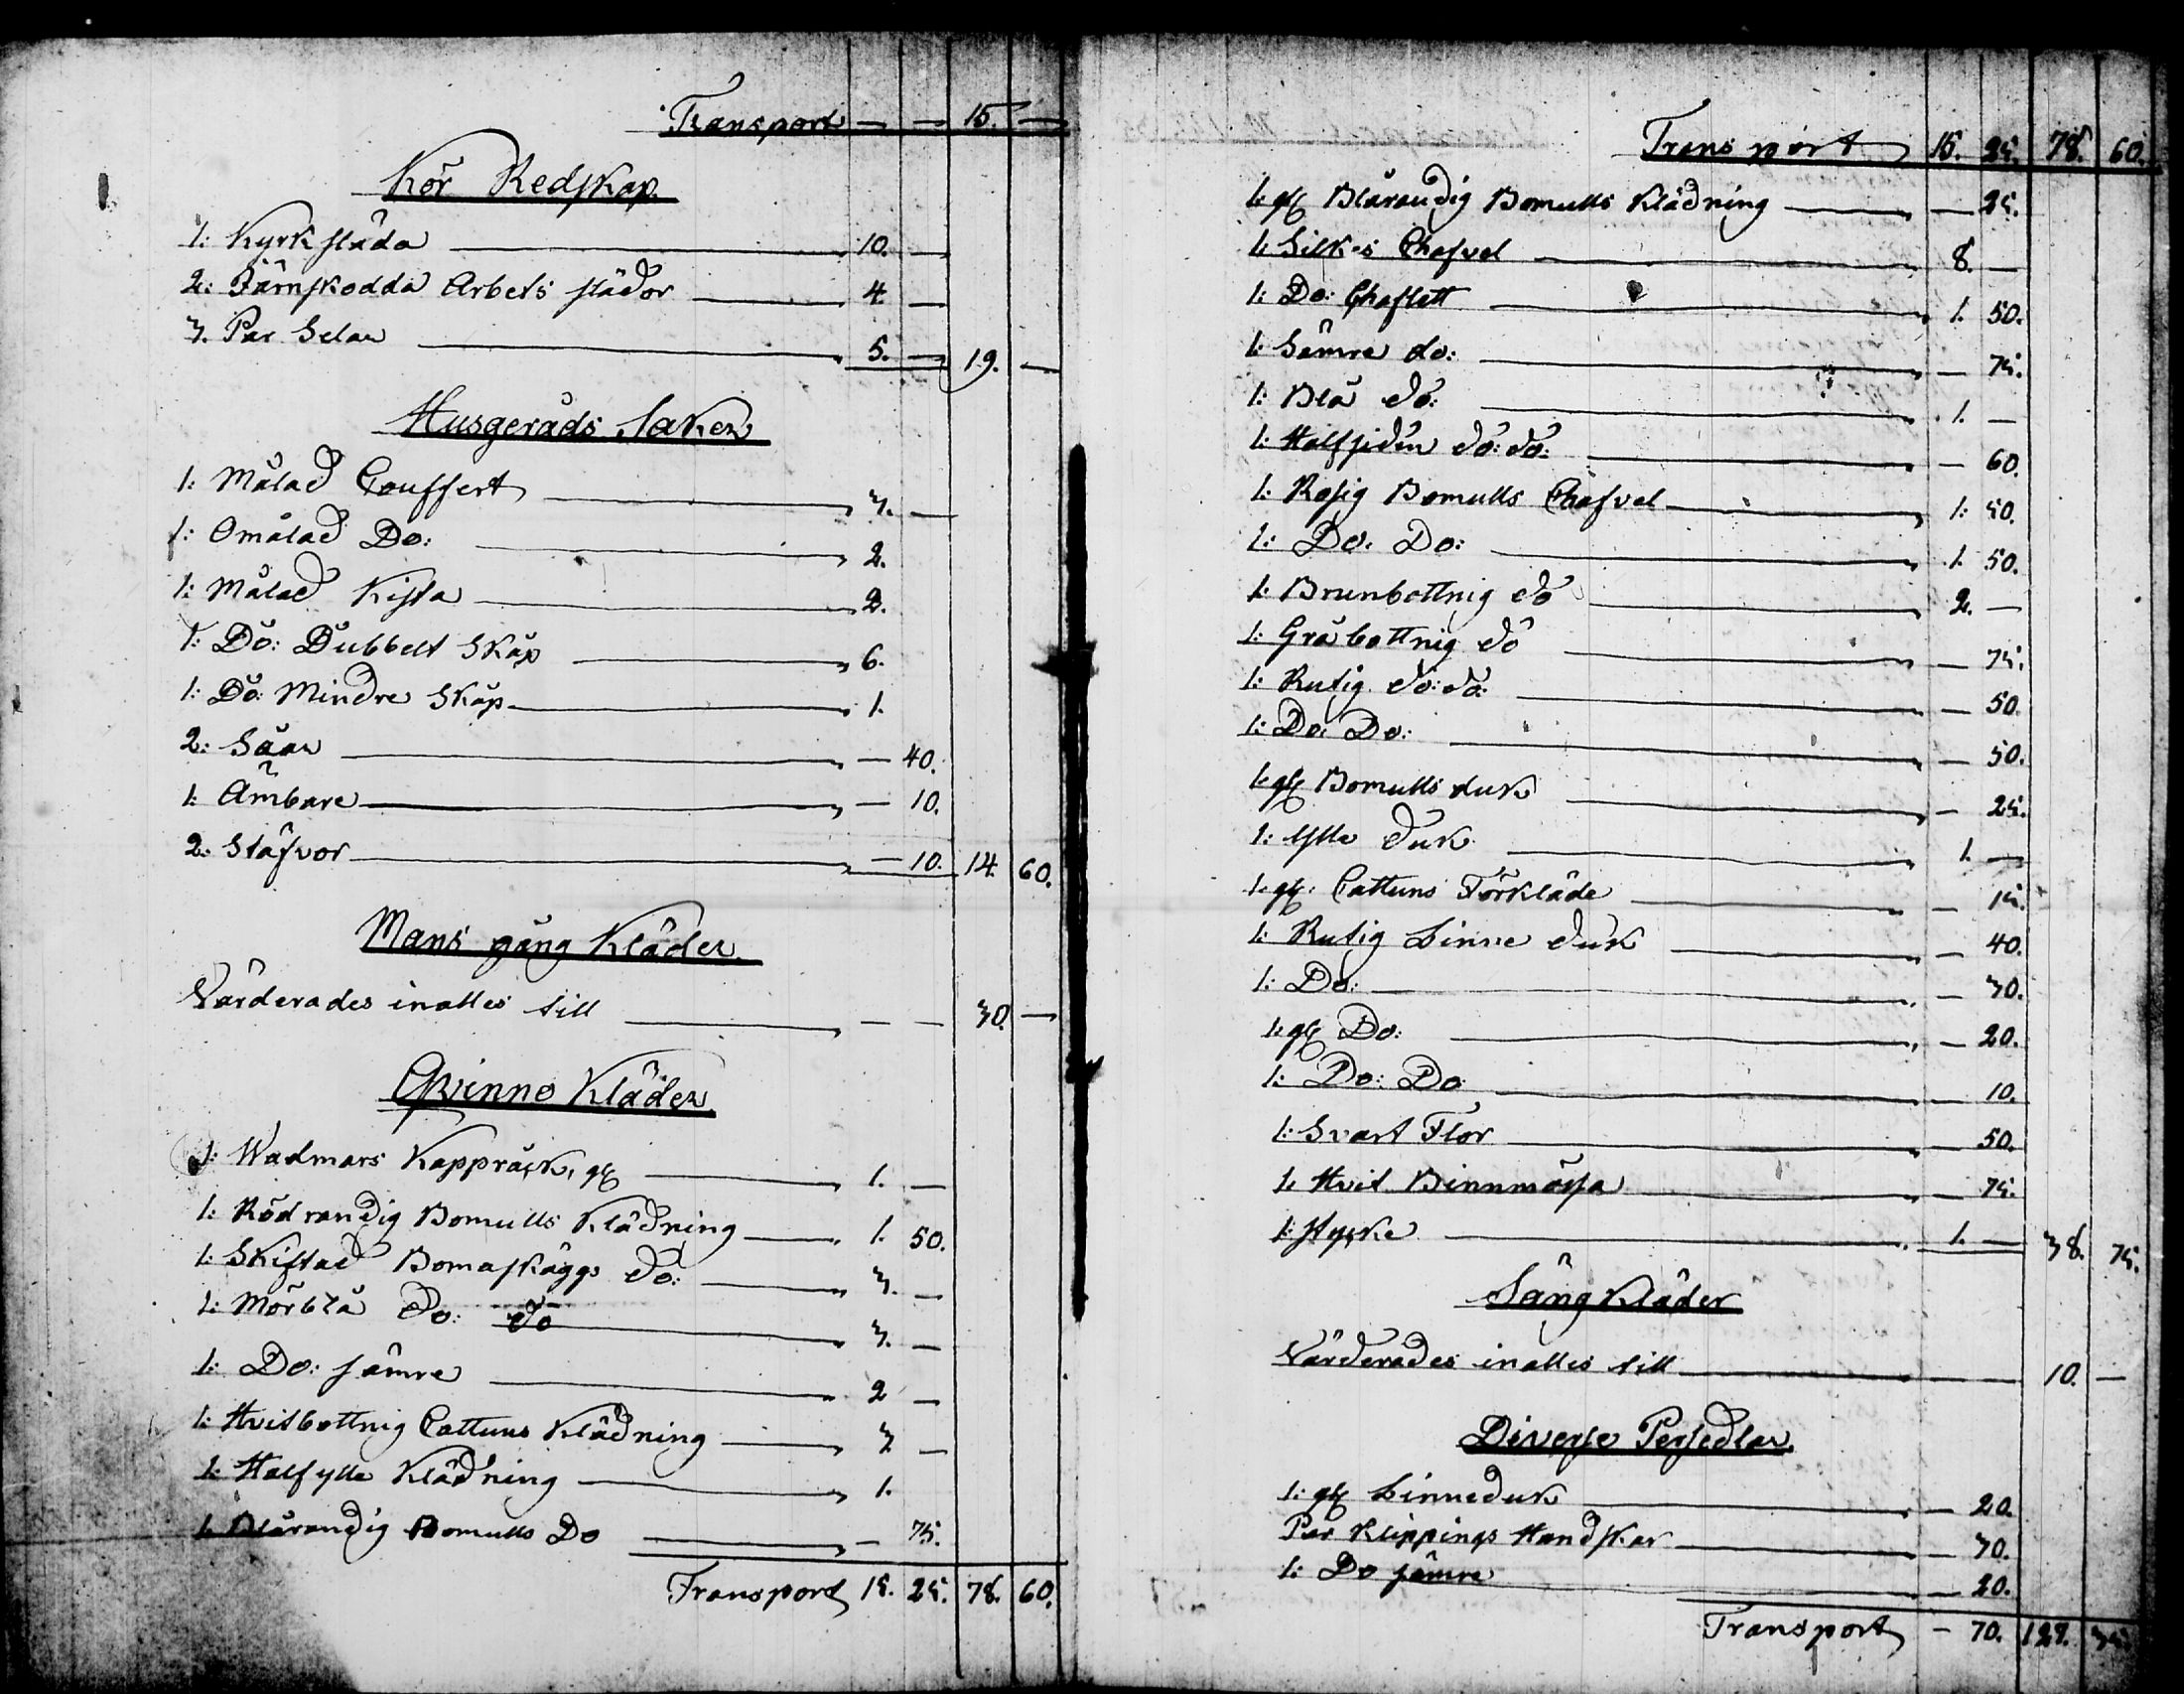 Transport — — 15. —
Kör Redskap.
1: Kyrksläda 10. —
2: Järnskodda Arbets slädor 4 —
3. Par Selar 5. — 19. —
Husgeråds Saker
1: Målad Couffert 3. —
1: Omålad Do: 2.
1: Målad Kista 2.
1: Do: Dubbelt Skåp 6.
1: Do: Mindre Skåp 1.
2: Såar — 40.
1: Ämbare — 10.
2: Stäfvor — 10. 14. 60.
Mans gång Kläder.
Värderades inalles till — — 30. —
Qvinno Kläder.
1: Wadmars Kappråck, gl 1. —
1: Rödrandig Bomulls Klädning 1. 50.
1: Skiftad Bomaskäggs do: 3. —
1: Mörblå Do: do 3. —
1: Do: sämre 2 —
1: Hvitbottnig Cattuns Klädning 3 —
1: Halfylle Klädning 1.
1. Blårandig Bomulls Do — 75.
Transport 15. 25. 78. 60.
Transport 15. 25. 78. 60.
1: gl Blårandig Bomulls Klädning — 25.
1: Silkes Chafvel 8. —
1: Do: Chaflett 1. 50.
1: Sämre do: — 75.
1: Blå do: 1. —
1: Halfsiden do: do: — 60.
1: Rosig Bomulls Chafvel 1: 50.
1: Do: Do: 1. 50.
1: Brunbottnig do 2. —
1: Gråbottnig do — 75.
1: Rutig do: do: — 50.
1: Do: Do: — 50.
1: gl Bomullsduk — 25.
1: Ylle duk 1. —
1: gl: Cattuns Förkläde — 15.
1: Rutig Linne duk — 40.
1: Do: — 30.
1: gl Do: — 20.
1: Do: Do — 10.
1: Svart Flor — 50.
1: Hvit Binnmössa — 75.
1: Stycke 1. — 38. 75.
Säng Kläder
Värderades inalles till — — 10. —
Diverse Persedlar.
1: gl Linneduk — 20.
Par Klippings Handskar — 30.
1: Do sämre — 20.
Transport — 70. 127. 35.